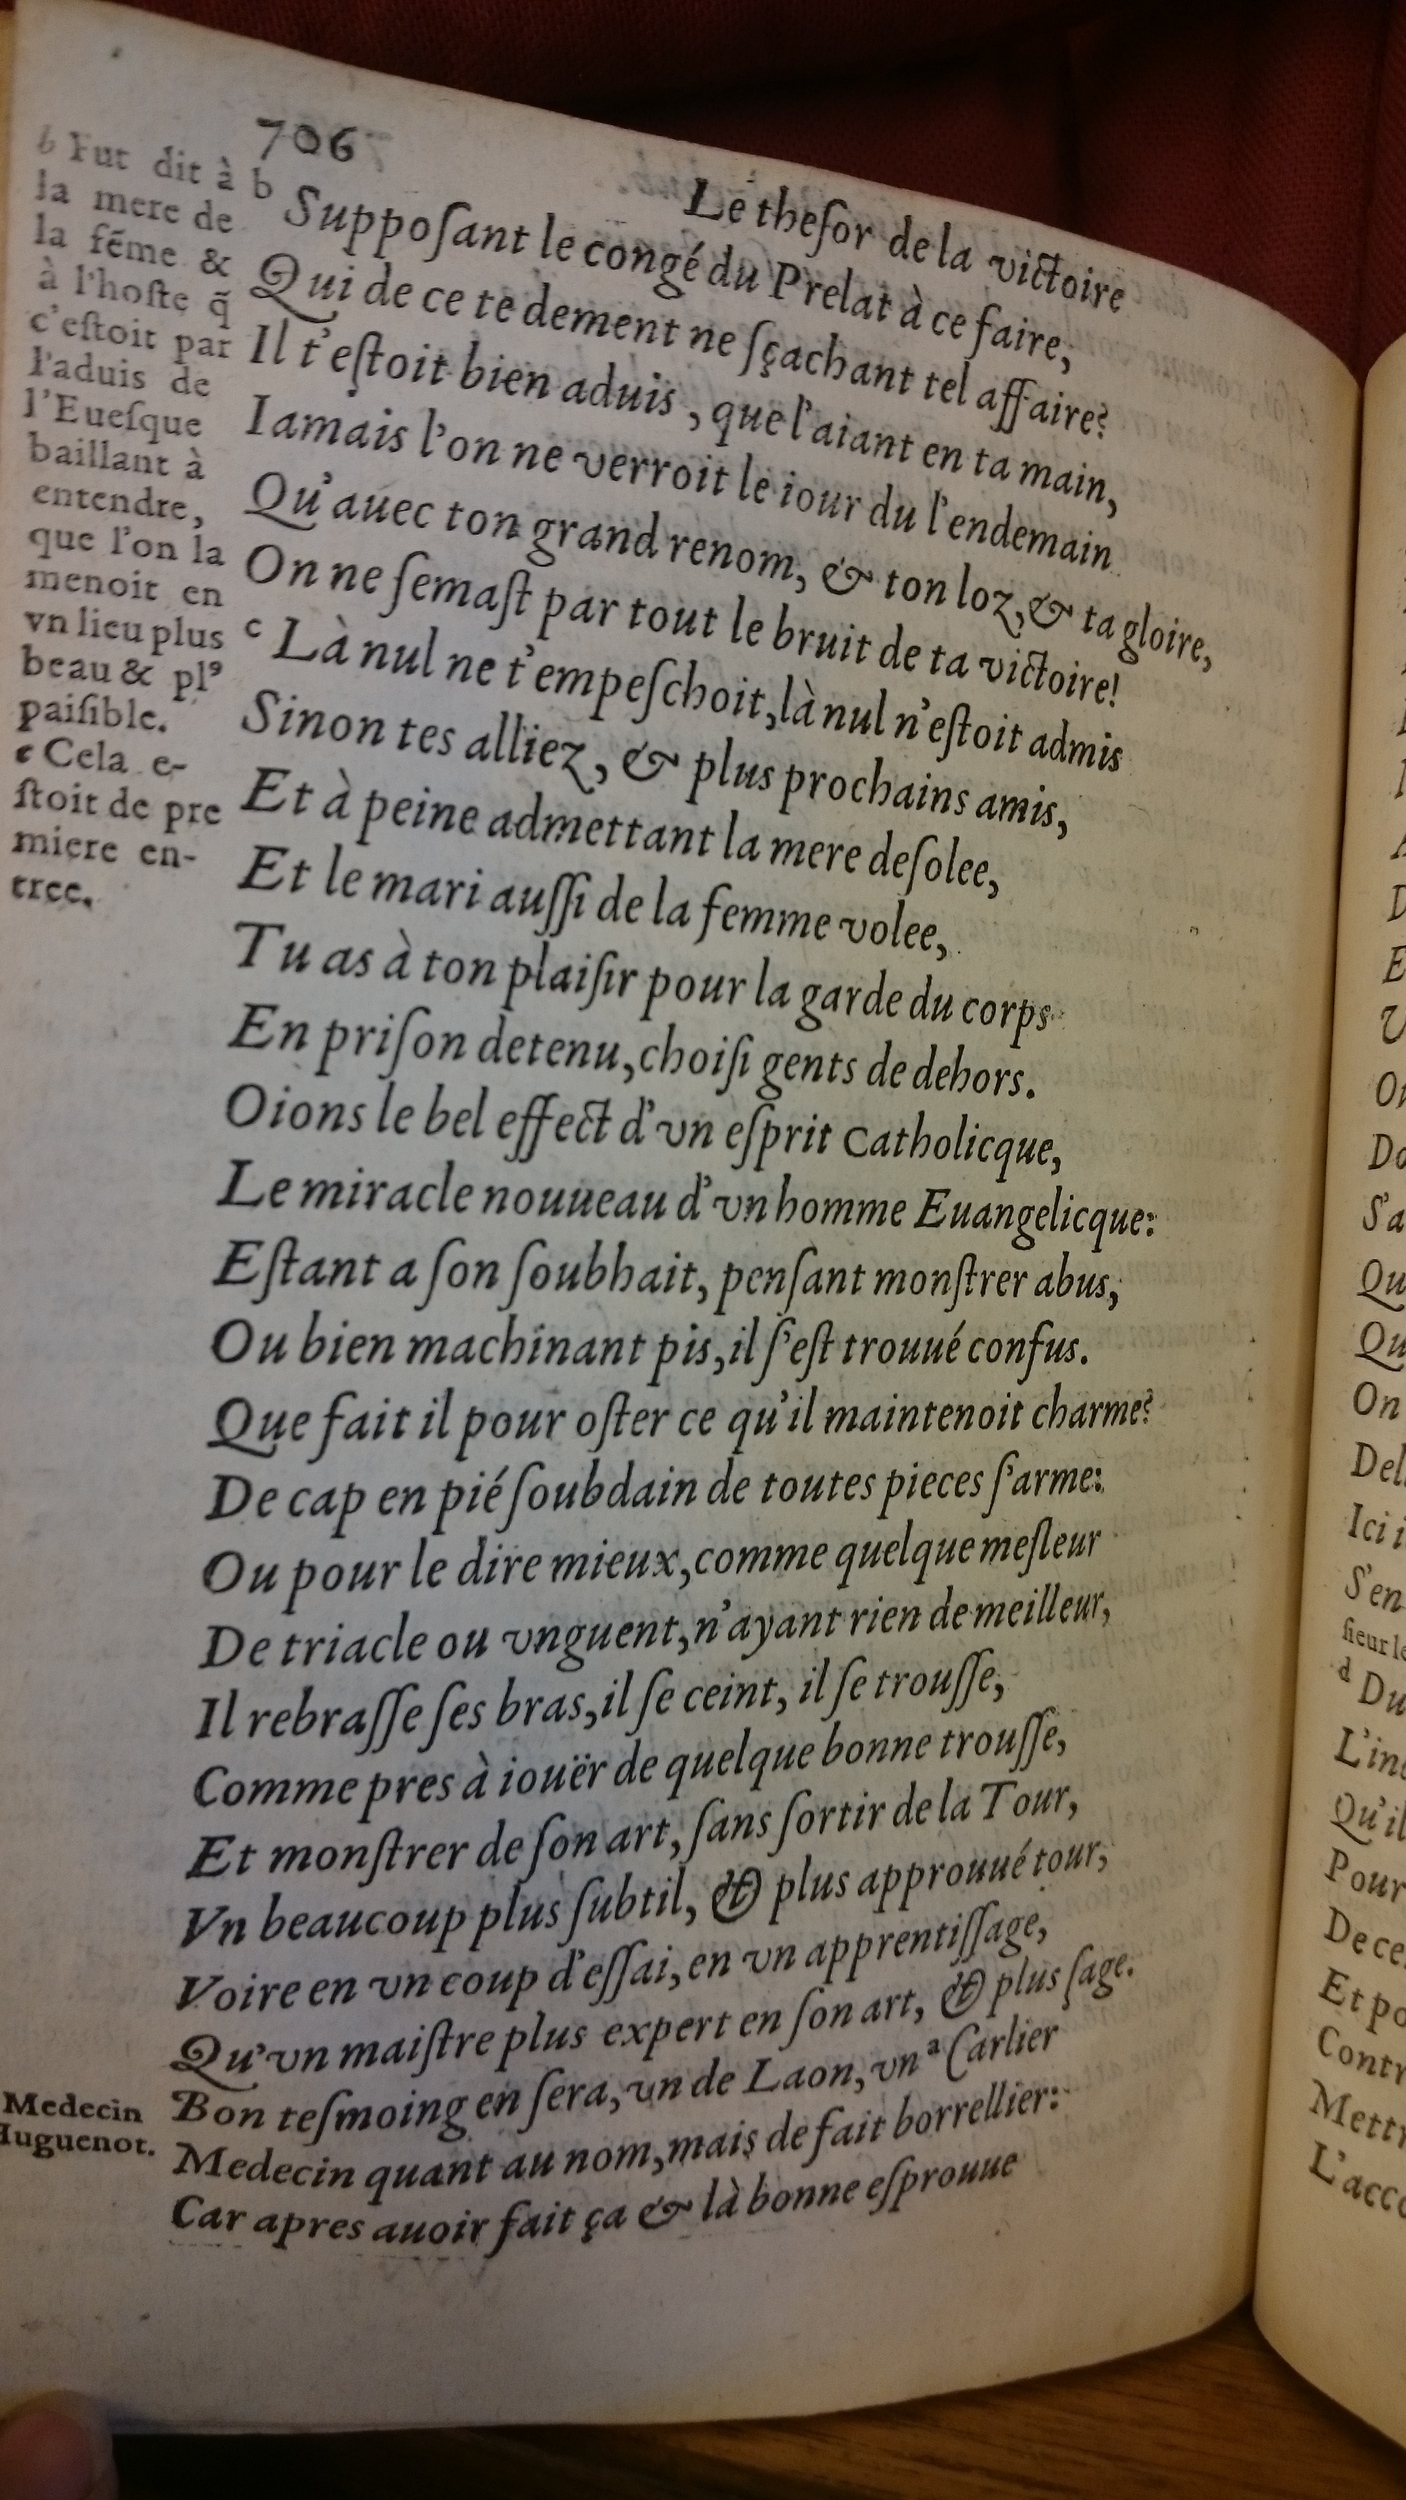 706
Le theſor de la victoire
b Fut dit à
la mere de
la fẽme &
à l'hoſte q̃
c'eſtoit par
l'aduis de
l'Eueſque
baillant à
entendre,
que l'on la
menoit en
vn lieu plus
beau & plꝰ
paiſible.
c Cela e-
ſtoit de pre
miere en-
tree.
b Suppoſant le congé du Prelat à ce faire,
Qui de ce te dement ne ſçachant tel affaire?
Il t'eſtoit bien aduis, que l'aiant en ta main,
Iamais l'on ne verroit le iour du l'endemain
Qu'auec ton grand renom, & ton loz, & ta gloire,
On ne ſemaſt par tout le bruit de ta victoire!
c Là nul ne t'empeſchoit, là nul n'eſtoit admis
Sinon tes alliez, & plus prochains amis,
Et à peine admettant la mere deſolee,
Et le mari auſſi de la femme volee,
Tu as à ton plaiſir pour la garde du corps
En priſon detenu, choiſi gents de dehors.
Oions le bel effect d'vn eſprit Catholicque,
Le miracle nouueau d'vn homme Euangelicque:
Eſtant a ſon ſoubhait, penſant monſtrer abus,
Ou bien machinant pis, il ſ'eſt trouué confus.
Que fait il pour oſter ce qu'il maintenoit charme?
De cap en pié ſoubdain de toutes pieces ſ'arme:
Ou pour le dire mieux, comme quelque meſleur
De triacle ou vnguent, n'ayant rien de meilleur,
Il rebraſſe ſes bras, il ſe ceint, il ſe trouſſe,
Comme pres à iouër de quelque bonne trouſſe,
Et monſtrer de ſon art, ſans ſortir de la Tour,
Vn beaucoup plus ſubtil, & plus approuué tour,
Voire en vn coup d'eſſai, en vn apprentiſſage,
Qu'vn maiſtre plus expert en ſon art, & plus ſage.
Bon teſmoing en ſera, vn de Laon, vn a Carlier
Medecin quant au nom, mais de fait borrellier:
Car apres auoir fait ça & là bonne eſprouue
Medecin
Huguenot.
D
E
V
Do
S'a
Qu
Qu
On
Del
Ici i
S'en
ſieur le
d Du
L'in
Qu'il
Pour
De ce
Et po
Contr
Mettr
L'acco